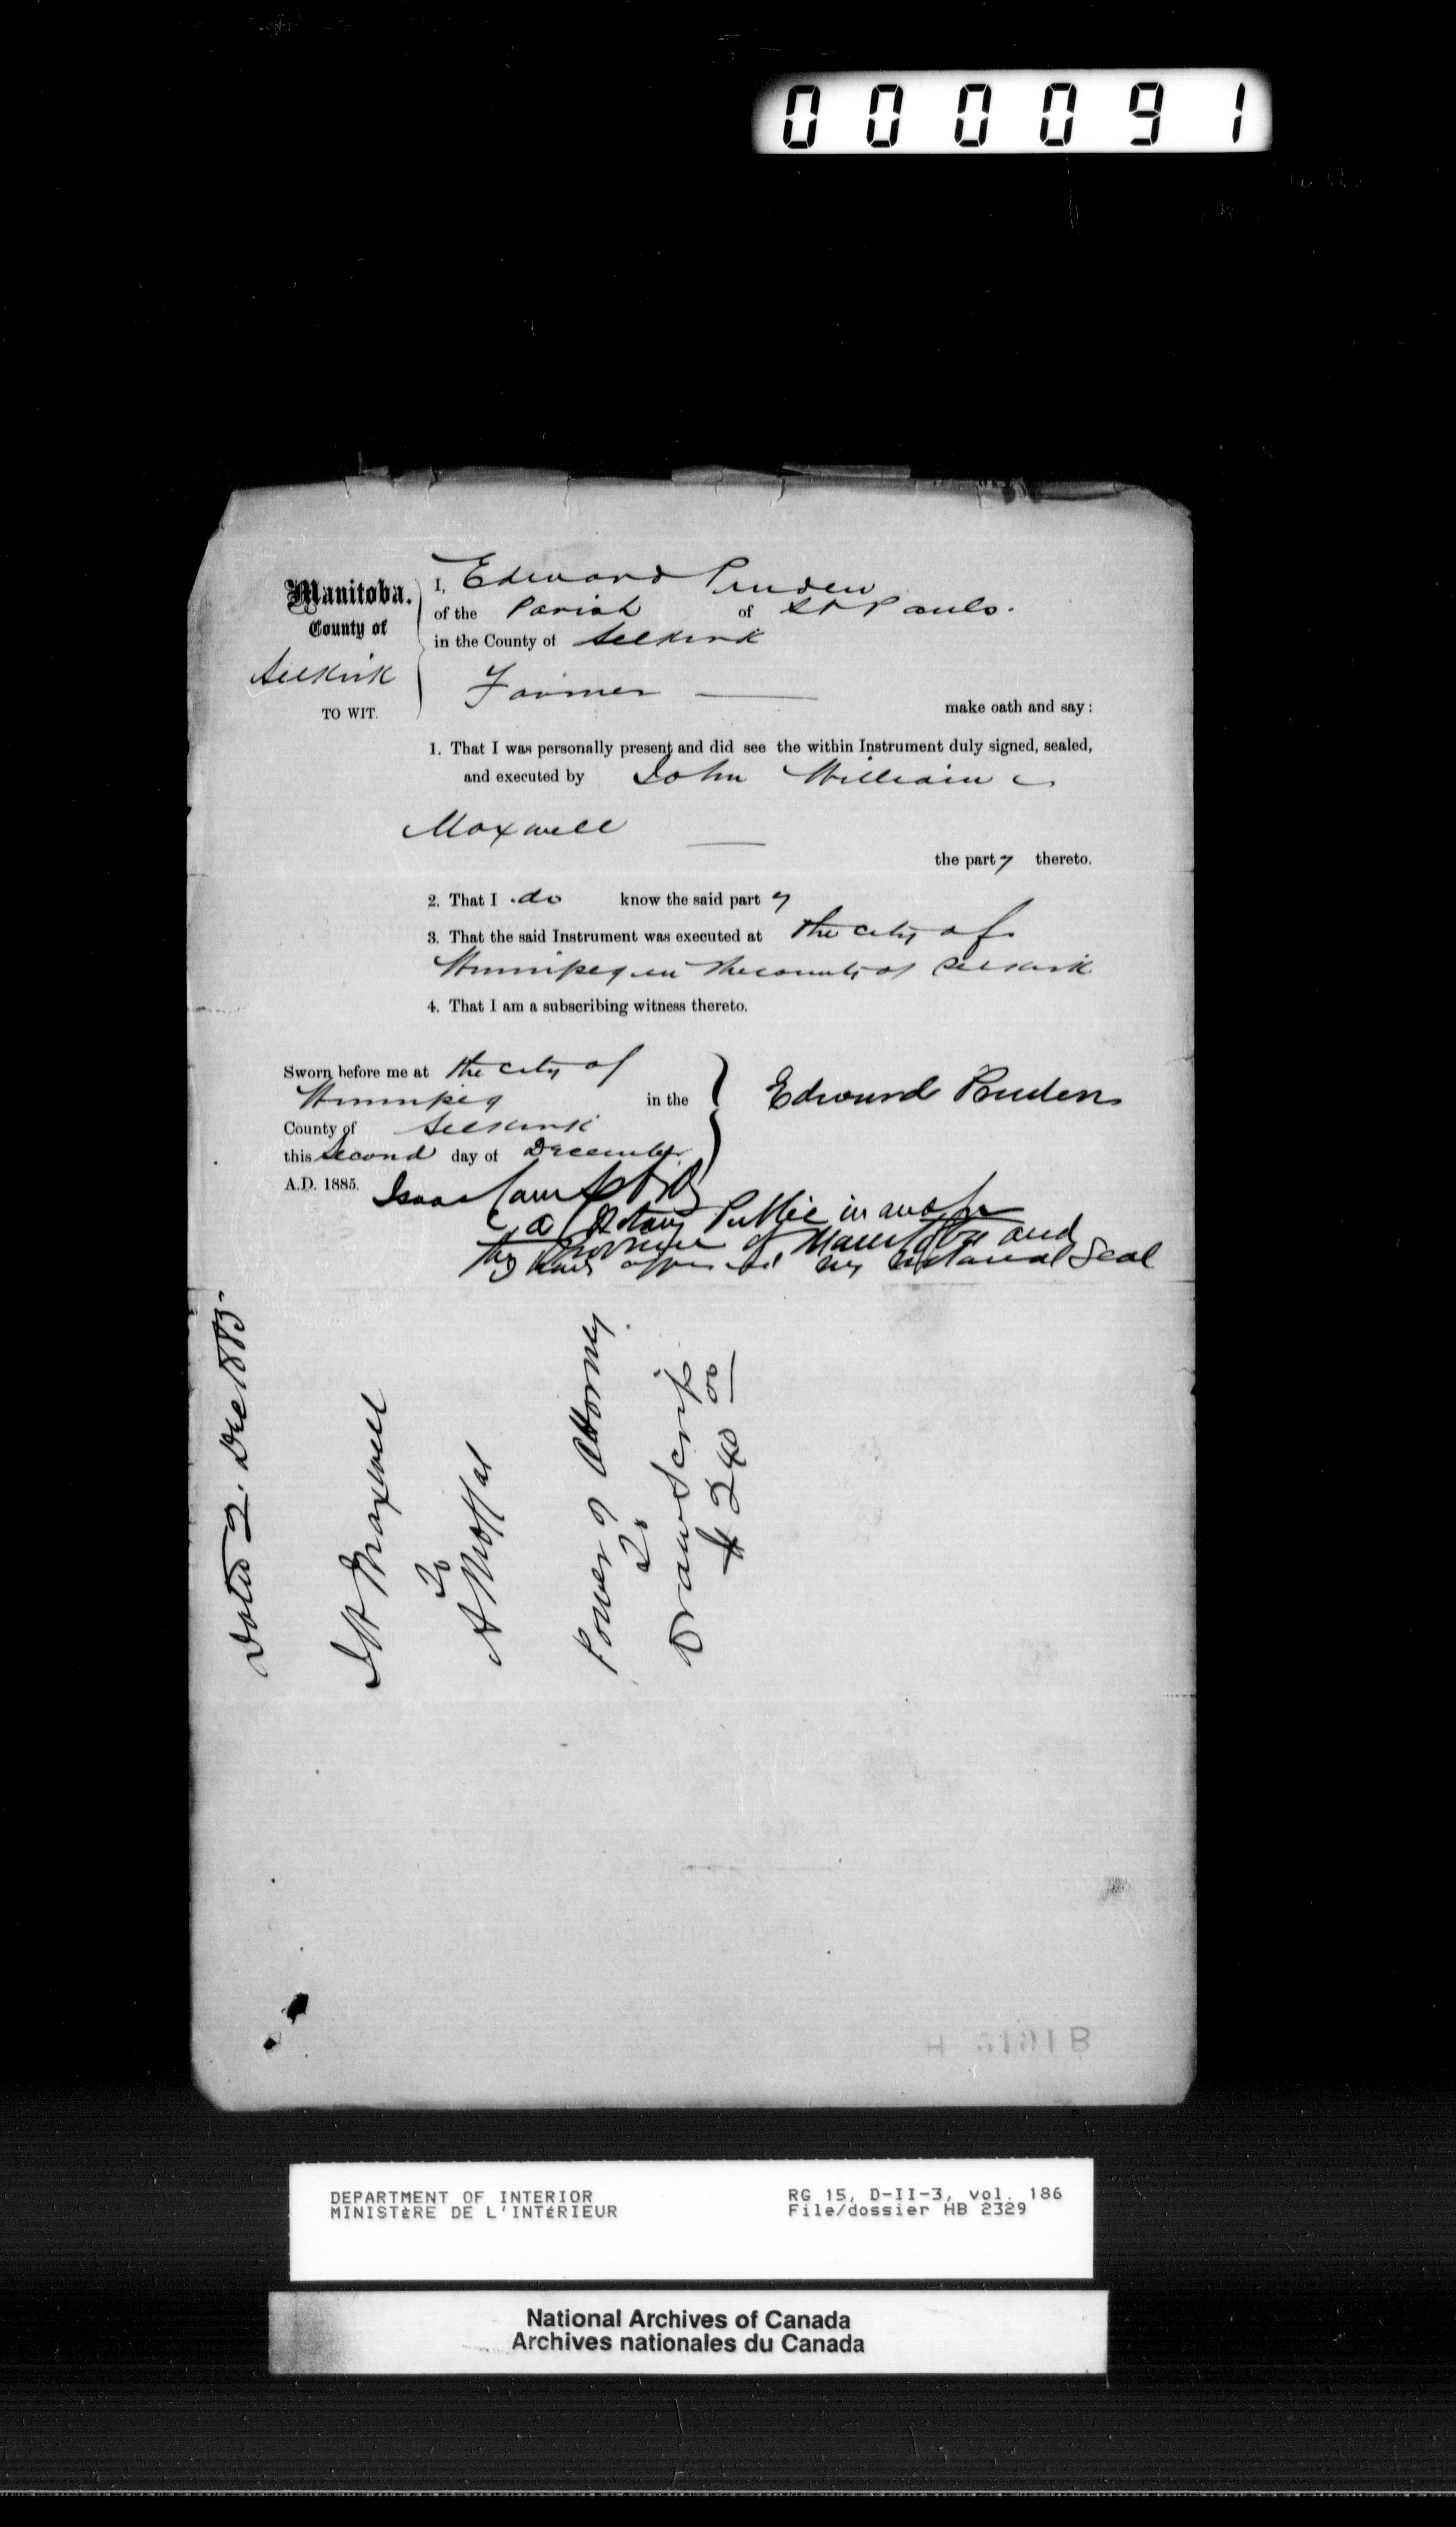 000091
Manitoba.
County of
Selkirk
TO WIT.
I, Edward Pruden
of the Parish of St Pauls.
in the County of Selkirk
Farmer
make oath and say:
1. That I was personally present and did see the within Instrument duly signed, sealed,
and executed by John William
Maxwell
the party thereto.
2. That I do know the said party
3. That the said Instrument was executed at the city of
Winnipeg in the county of Selkirk
4. That I am a subscribing witness thereto.
Sworn before me at the city of
Winnipeg in the
County of Selkirk
this second day of December
A.D. 1885.
Edward Pruden
Isaac Campbell
a Notary Public in and for
the Province of Manitoba and
have my notarial Seal
Dated 2. Dec 1885
JW Maxwell
To
A Moffat
Power of Attorney
To
Draw Scrip
$ 240 00
DEPARTMENT OF INTERIOR
MINISTÈRE DE L'INTÉRIEUR
RG 15, D-II-3, vol. 186
File/dossier HB 2329
National Archives of Canada
Archives nationales du Canada